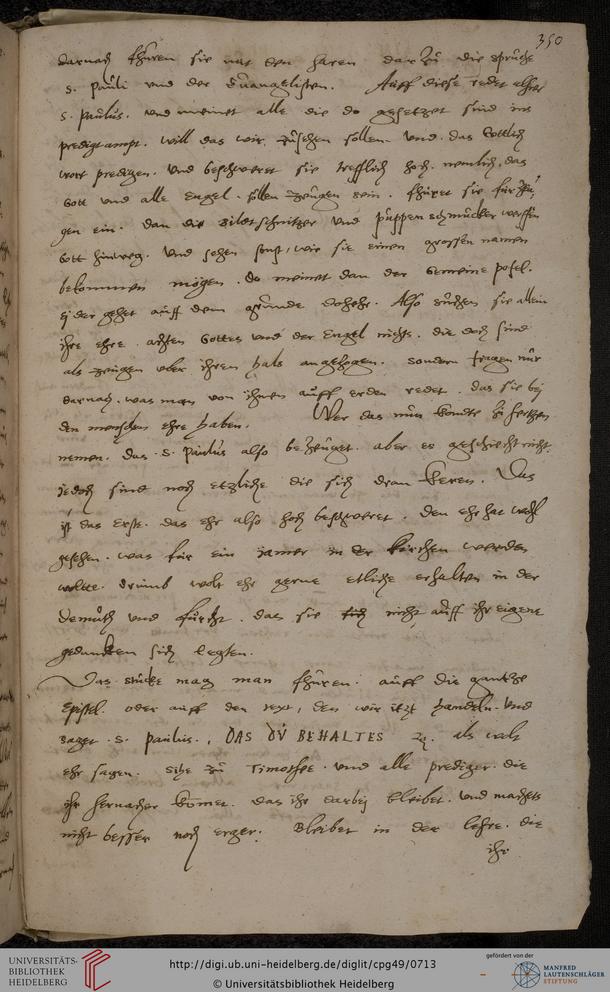 350
darnach fhüren sie mit den haren darzu die sprüche
s. Pauli vnd der Euangelisten. Auff diese redet alhier
s. Paulus. vnd meinet alle die do gesetzet sind ins
predigtampt. will das wir zusehen sollen vnd das Gottlich
wort predigen. vnd beschweret sie trefflich hoch. nemlich, das
Gott vnd alle Engel. sollen zeugen sein. fhüret sie fur zeu
gen ein. dan die bildtschnitzer vnd puppenschmücker werffen
Gott hinweg. vnd sehen sonst, wie sie einen grossen namen
bekommen mögen. do meinet dan der Gemeine pofel.
ej der gehet auff dem grunde doher. Also suchen sie allein
ihre ehre. achten Gottes vnd der Engel nichts. die doch sind
als zeugen vber ihren hals angezogen. sondern fragen nur
darnach. was man von ihnen auff erden redet. das sie bej
den menschen ehre haben. Wer das nun kondte zu hertzen
nemen. das S. Paulus also bezeuget. aber es geschiecht nicht.
jedoch sind noch etzliche die sich dran keren. Das
ist das Erste. das ehr also hoch beschweret. den ehr hat wohl
gesehen. was fur ein jamer in der kirchen werden
wolte. drumb wolt ehr gerne etliche erhalten in der
demuth vnd furcht. das sie sich nicht auff ihr eigene
gedancken sich legten.
Das stücke mag man fhüren. auff die gantze
Epistel. oder auff den text, den wir itzt handeln. vnd
saget. S. Paulus., DAS DU BEHALTES ꝛc. als wolt
ehr sagen. Sihe zu Timothee. vnd alle prediger. die
ihr hernacher komet. das ihr darbej bleibet. vnd machets
nicht besser noch erger. Bleibet in der lehre. die
ihr
UNIVERSITÄTS-
BIBLIOTHEK
HEIDELBERG
http://digi.ub.uni-heidelberg.de/diglit/cpg49/0713
© Universitätsbibliothek Heidelberg
gefördert von der
MANFRED
LAUTENSCHLÄGER
STIFTUNG